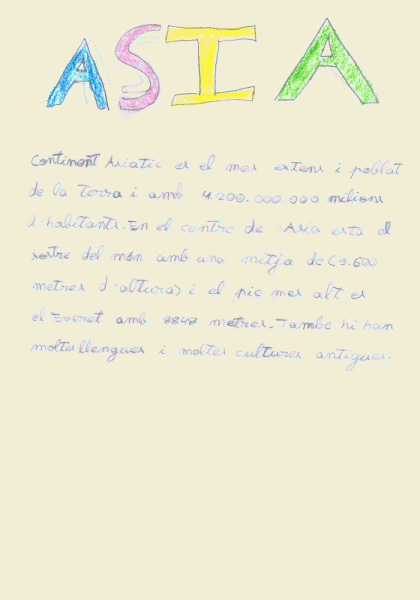 ASIA
Continent Asiatic es el mes extens i poblat
de la Terra i amb 4.200.000.000 milions
d'habitants. En el centre de Asia esta el
sostre del món amb una mitja de (3.600
metres d'altura) i el pic mes alt es
el Everet amb 8848 metres. Tambe hi han
moltes llengues i moltes cultures antigues.